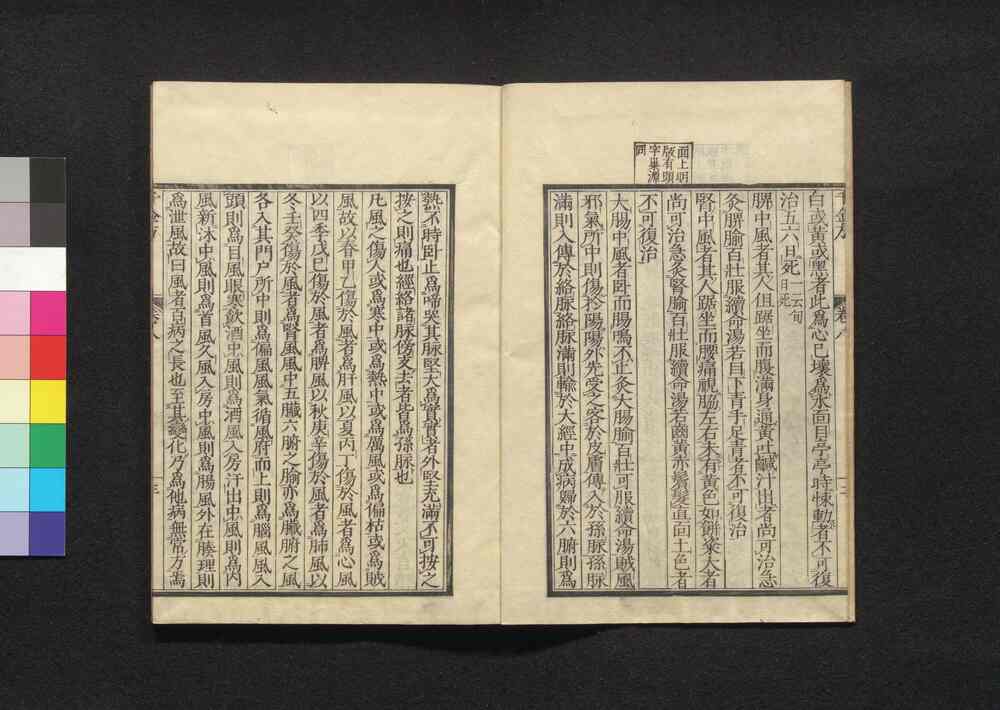 面上明
版有頭
字巢源
同
白或黃或黑者此爲心已壞爲水面目亭亭時悚動者不可復
治五六日死一云旬日死
脾中風者其人但踞坐而腹滿身通黃吐鹹汁出者尚可治急
灸脾腧百壯服續命湯若目下青手足青者不可復治
腎中風者其人踞坐而腰痛視脇左右未有黃色如餅粢大者
尚可治急灸腎腧百壯服續命湯若齒黃赤鬢髮直面土色者
不可復治
大腸中風者臥而腸鳴不止灸大腸腧百壯可服續命湯賊風
邪氣所中則傷於陽陽外先受之客於皮膚傳入於孫脉孫脉
滿則入傳於絡脉絡脉滿則輸於大經中成病歸於六腑則爲
熱不時臥止爲啼哭其脉堅大爲實實者外堅充滿不可按之
按之則痛也經絡諸脉傍支去者皆爲孫脉也
凡風之傷人或爲寒中或爲熱中或爲厲風或爲偏枯或爲賊
風故以春甲乙傷於風者爲肝風以夏丙丁傷於風者爲心風
以四季戊巳傷於風者爲脾風以秋庚辛傷於風者爲肺風以
冬壬癸傷於風者爲腎風風中五臟六腑之腧亦爲臟腑之風
各入其門戶所中則爲偏風風氣循風府而上則爲腦風風入
頭則爲目風眼寒飲酒中風則爲酒風入房汗出中風則爲內
風新沐中風則爲首風久風入房中風則爲腸風外在腠理則
爲泄風故曰風者百病之長也至其變化乃爲他病無常方焉